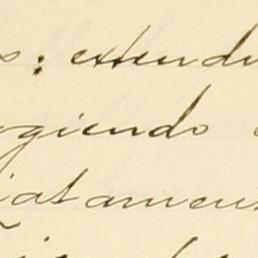 s: extendi
ogiendo
iatamen